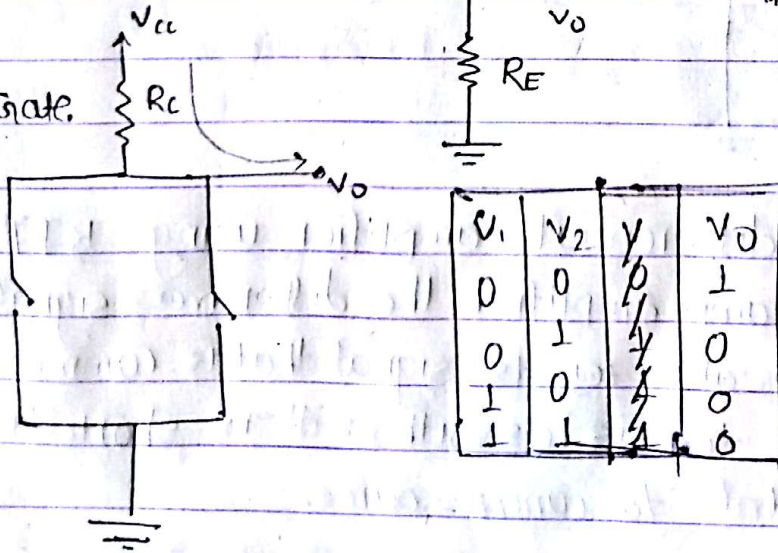 Vcc
Vo
RE
Rc
Vo
V1 V2 Y Vo
0 0 0 1
0 1 1 0
1 0 1 0
1 1 1 0